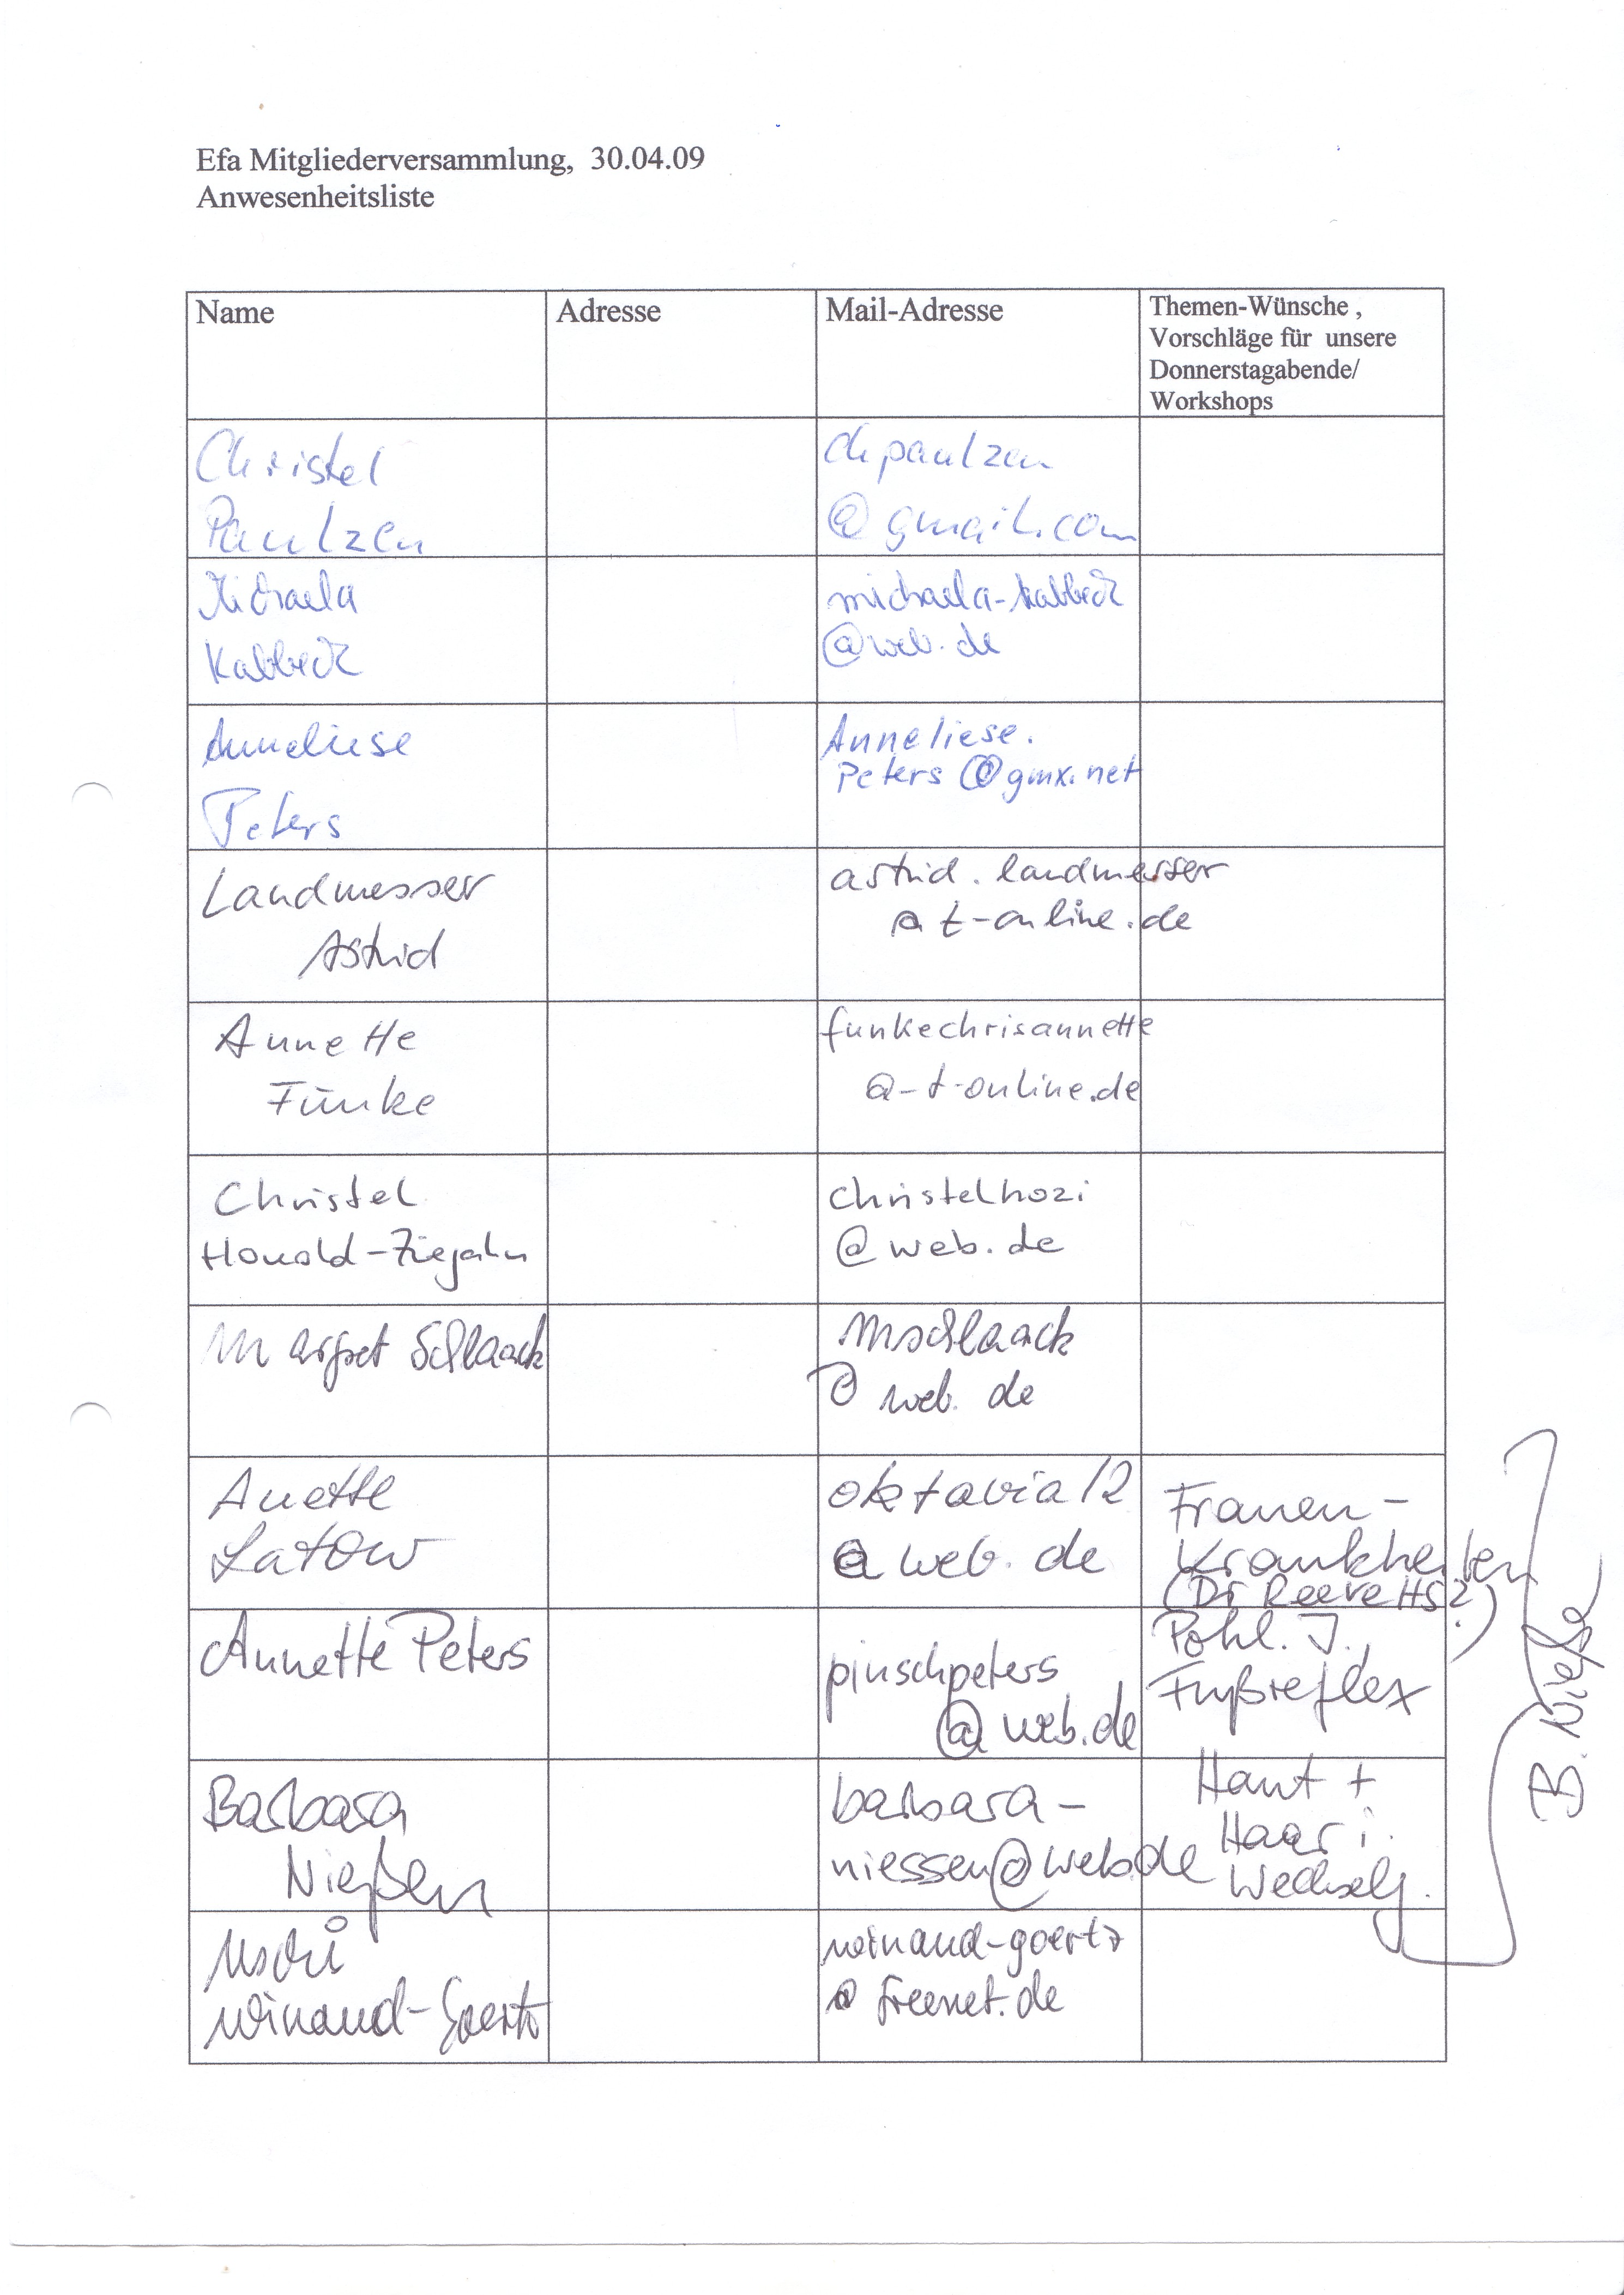 Efa Mitgliederversammlung, 30.04.09
Anwesenheitsliste
Name
Adresse
Mail-Adresse
Themen-Wünsche ,
Vorschläge für unsere
Donnerstagabende/
Workshops
Christel
Paulzen
chpaulzen
@gmail.com
Michaela
Kabbeck
michaela-kabbeck
@web.de
Anneliese
Peters
Anneliese.
Peters@gmx.net
Landmesser
Astrid
astrid.landmesser
@t-online.de
Annette
Funke
funkechrisannette
@-t-online.de
Christel
Honold-Ziegahn
christelhozi
@web.de
Margret Schlaack
mschlaack
@web.de
Anette
Latow
oktavia12
@web.de
Frauen-
Krankheiten
(Dr Reeve HS?)
Annette Peters
pinschpeters
@web.de
Pohl. J.,
Fußreflex
Barbara
Nießen
barbara-
niessen@web.de
Haut +
Haar i.
Wechselj.
Uschi
Winand-Goertz
winand-goertz
@freenet.de
B. Nieße